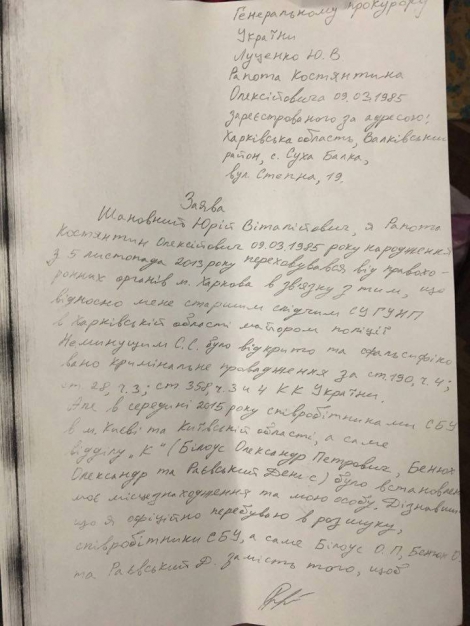 Генеральному прокурору
України
Луценко Ю.В
Рапота Костянтина
Олексійовича 09.03.1985
зареєстрованого за адресою:
Харківська область, Валківський
район, с. Суха Балка,
вул. Степна, 19.
Заява
Шановний Юрій Віталійович, я Рапота
Костянтин Олексійович 09.03.1985 року народження
з 5 листопада 2013 року переховувався від правоохо-
ронних органів м. Харкова в зв'язку з тим, що
відносно мене старшим слідчим СУ ГУНП
в Харківській області майором поліції
Неминущим С.С. було відкрито та сфальсифіко
вано кримінальне провадження за ст. 190, ч. 4;
ст. 28, ч. 3; ст 358, ч. 3 и 4 КК України.
Але в середині 2015 року співробітниками СБУ
в м. Києві та Київеній області, а саме
відділу „К" (Білоус Олександр Петрович, Бенюх
Олександр та Раєвський Денис) було встановлено
моє місцезнаходження та мою особу. Дізнавшись
що я офіційно перебуваю в розшуку,
співробітники СБУ, а саме Білоус О.П, Бенюх О.
та Раєвський Д. замість того, щоб